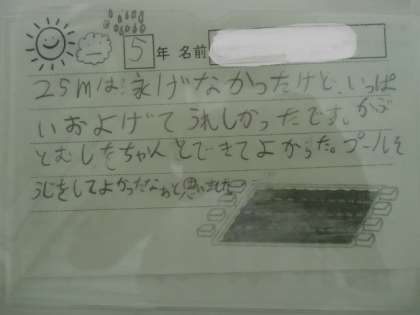 5年 名前
25mは泳げなかったけど、いっぱ
いおよげてうれしかったです。かぶ
とむしをちゃんとできてよかった。プールそ
うじをしてよかったなぁと思いました。